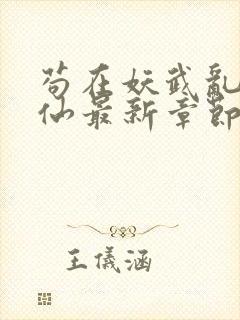 苟在妖武亂
仙最新章節
王儀涵